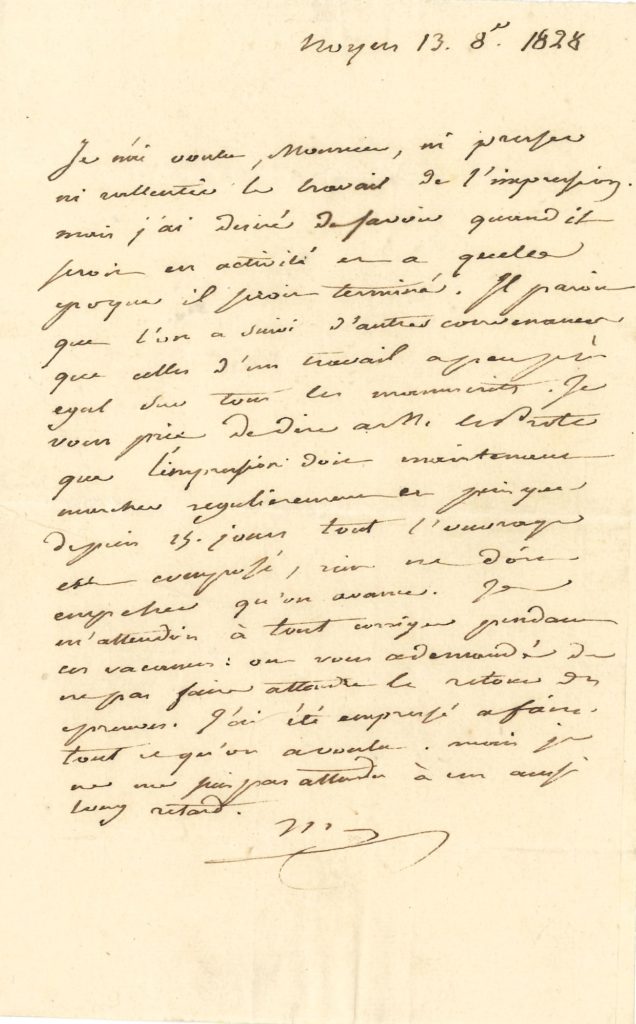 Noyen 13. 8re. 1828
Je n'ai voulu, Monsieur, ni presser
ni rallentir le travail de l'impression.
mais j'ai desiré de savoir quand il
seroit en activité et a quelle
epoque il seroit terminé. Il paroit
que l'on a suivi d'autres convenances
que celles d'un travail a peu près
egal sur tous les manuscrits. Je
vous prie de dire a M. le Prote
que l'impression doit maintenant
marcher regulierement et puisque
depuis 15. jours tout l'ouvrage
est composé, rien ne doit
empecher qu'on avance. Je
m'attendois à tout corriger pendant
ces vacances: on vous a demandé de
ne pas faire attendre le retour des
epreuves. J'ai été empressé a faire
tout ce qu'on a voulu. mais je
ne me suis pas attendu à un aussi
long retard.